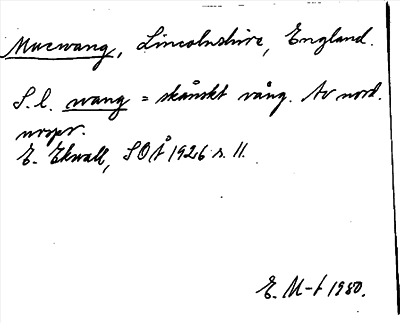 Mucwang, Lincolnshire, England.
S. l. wang = skånskt vång. Av nord.
urspr.
E. Ekwall, SOÅ 1926 s. 11.
E. M-t 1980.